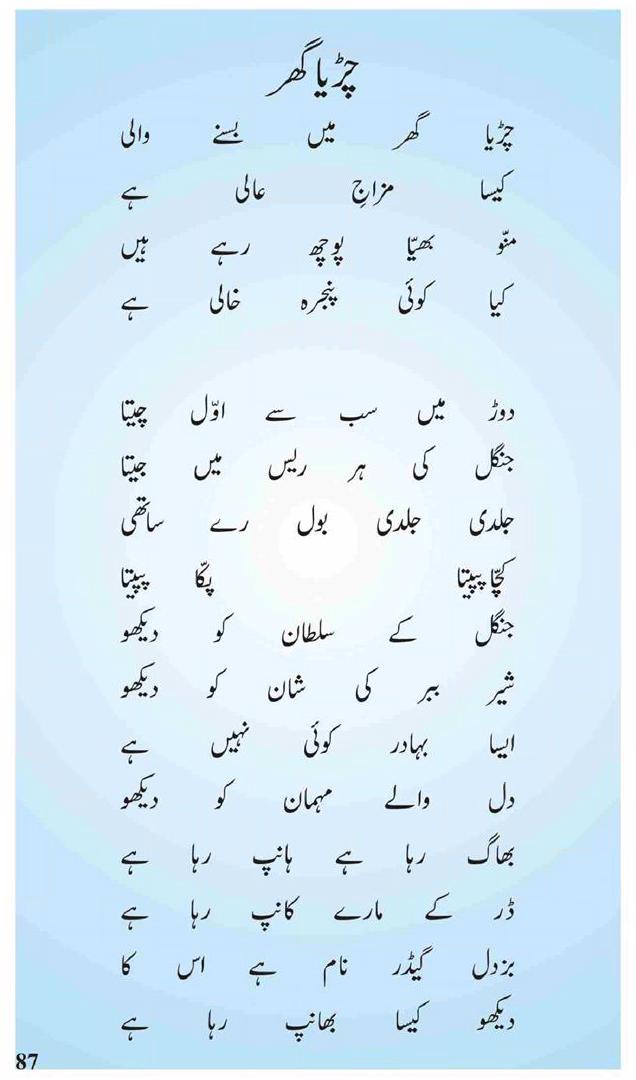 چڑیا گھر
چڑیا گھر میں بسنے والی
کیسا مزاجِ عالی ہے
منّو بھیّا پوچھ رہے ہیں
کیا کوئی پنجرہ خالی ہے
دوڑ میں سب سے اوّل چیتا
جنگل کی ہر ریس میں جیتا
جلدی جلدی بول رے ساتھی
کچّا پپیتا پکّا پپیتا
جنگل کے سلطان کو دیکھو
شیر ببر کی شان کو دیکھو
ایسا بہادر کوئی نہیں ہے
دل والے مہمان کو دیکھو
بھاگ رہا ہے ہانپ رہا ہے
ڈر کے مارے کانپ رہا ہے
بزدل گیڈر نام ہے اس کا
دیکھو کیسا بھانپ رہا ہے
87